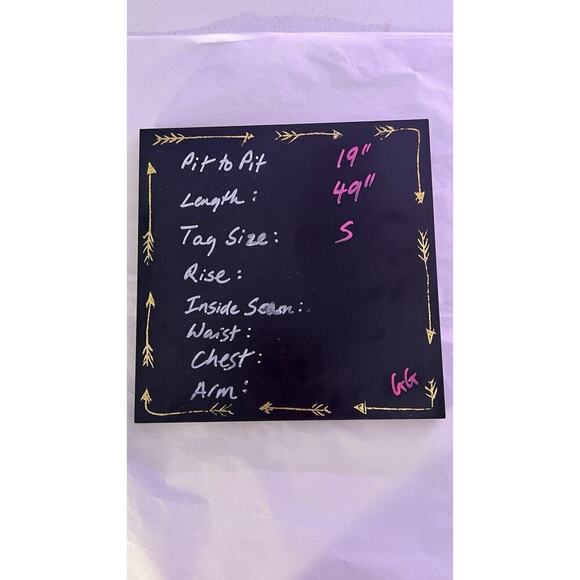 Pit to Pit 19"
Length: 49"
Tag Size: S
Rise:
Inside Seam:
Waist:
Chest:
Arm:
GG